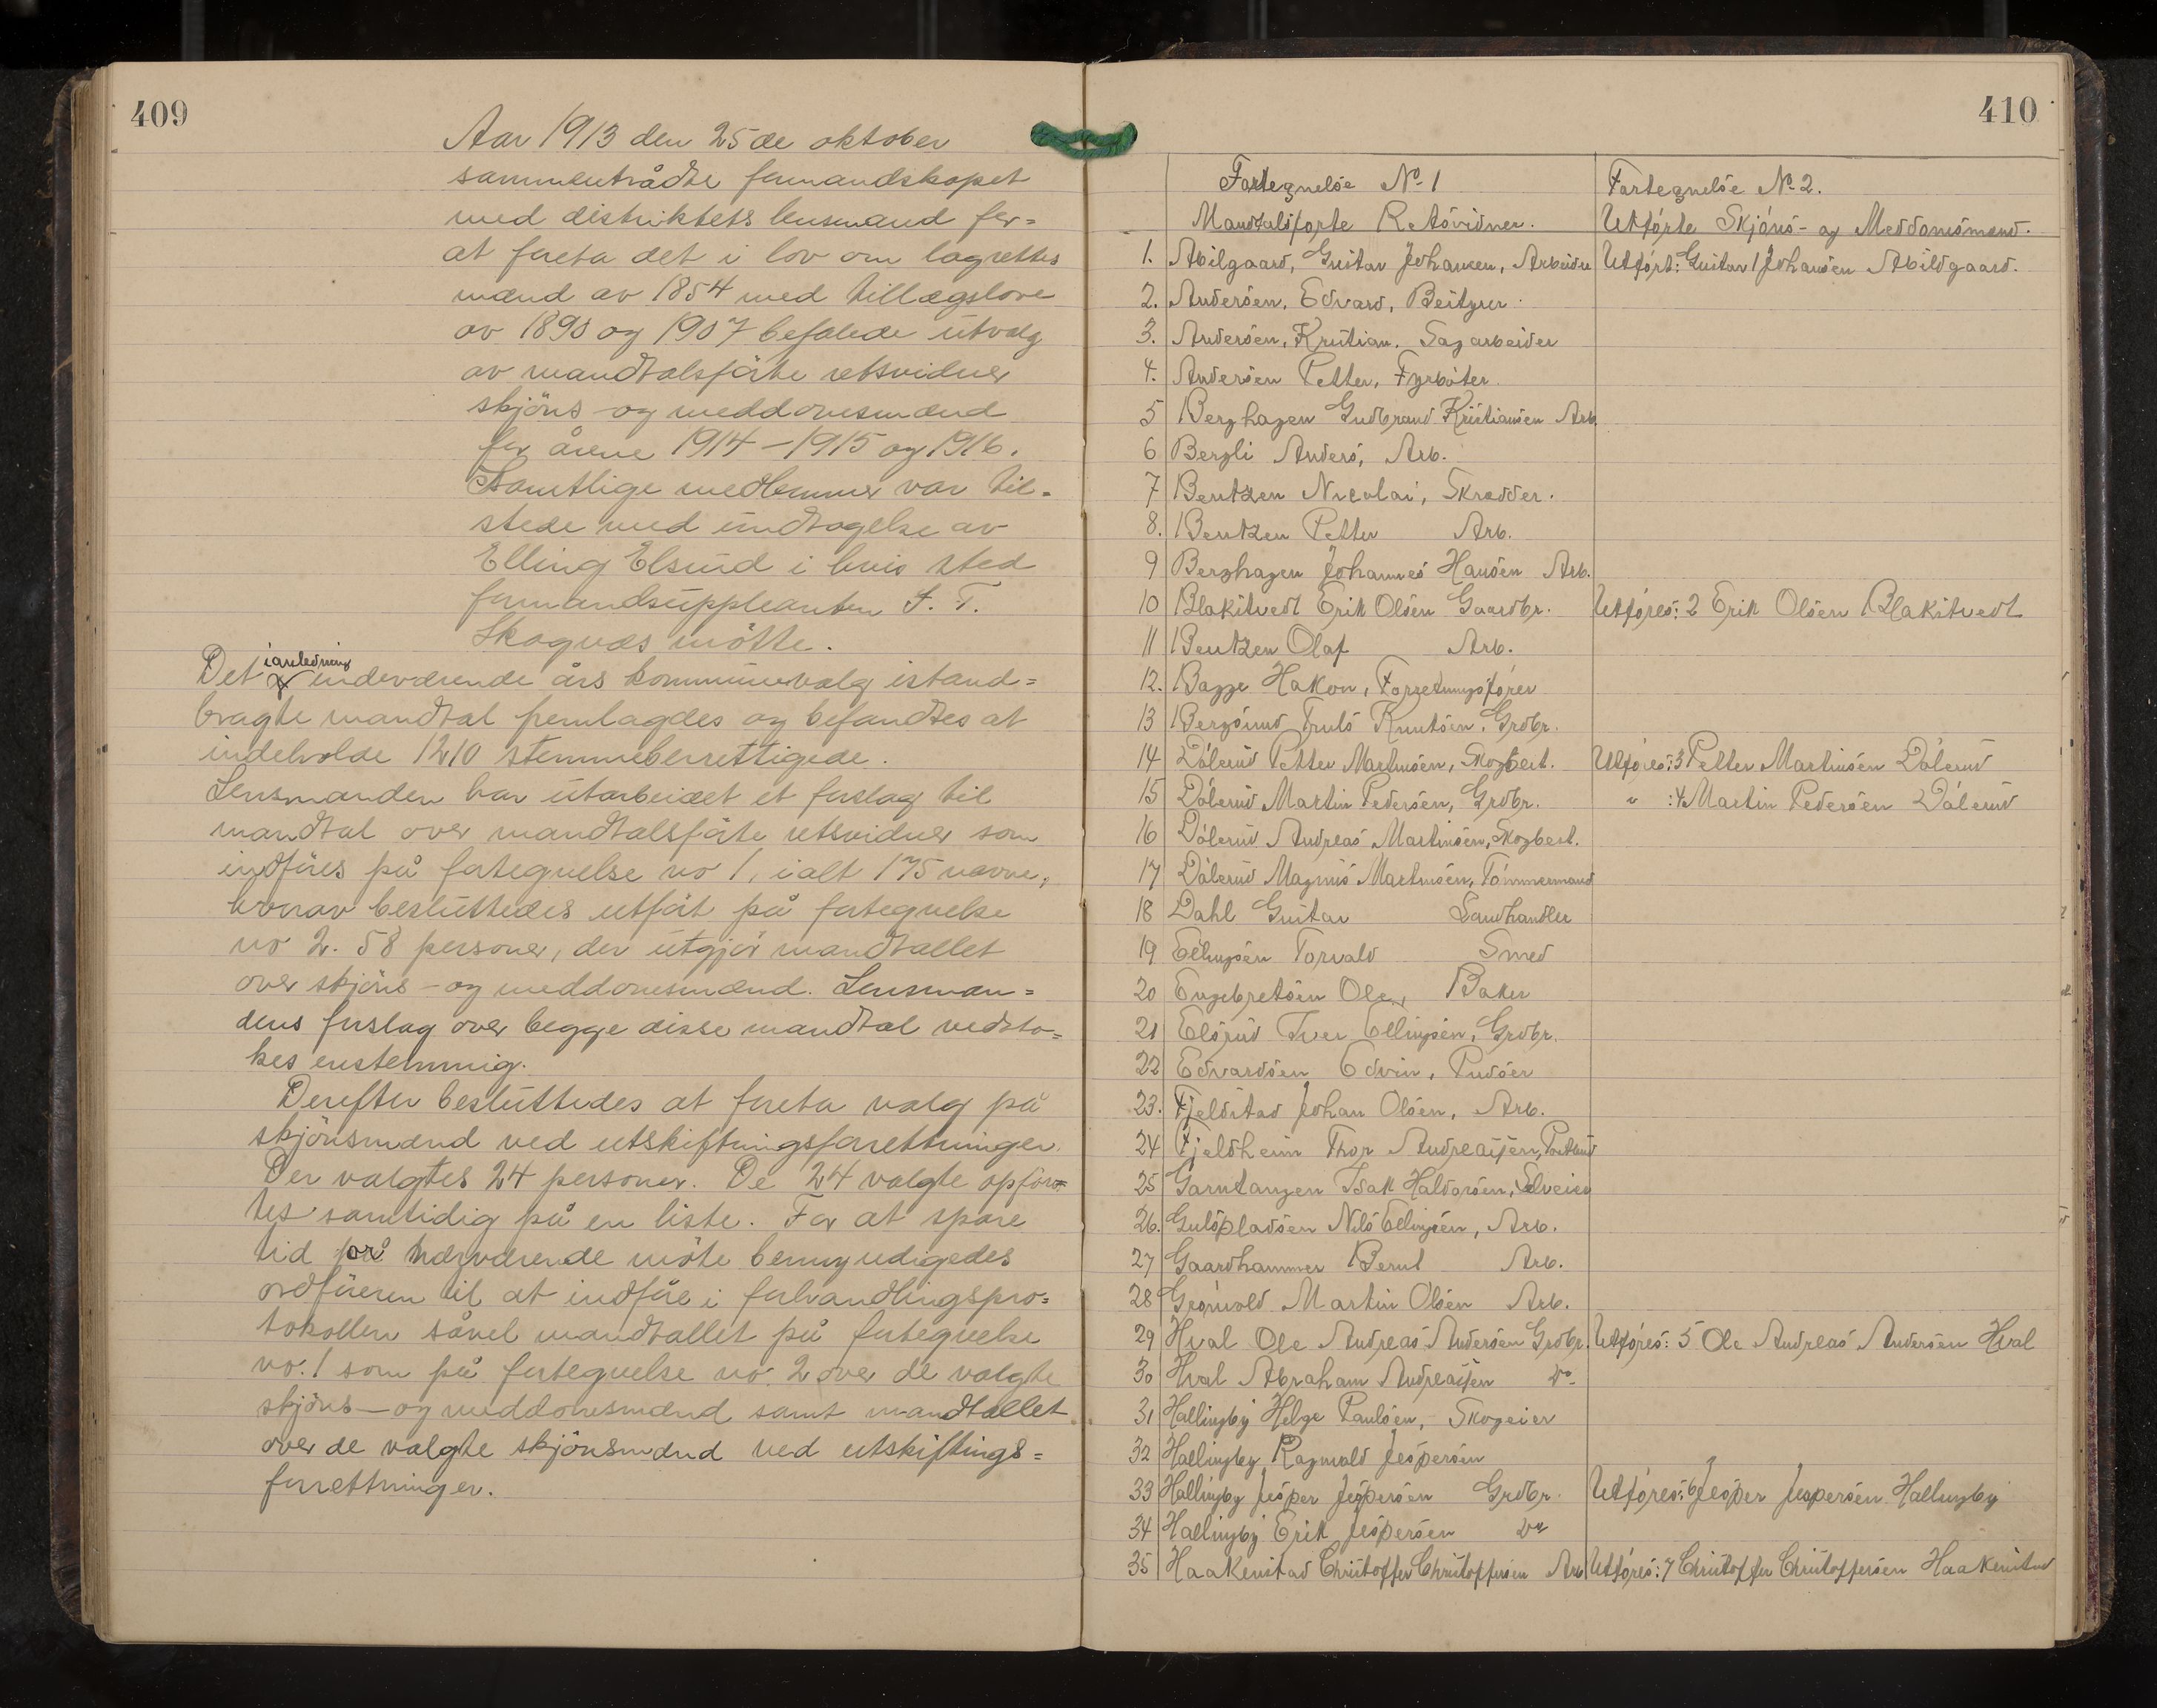 409
Aar 1913 den 25de oktober
sammentrådte formandskapet
med distriktets lensmand for=
at foreta det i lov om lagrettes
mænd av 1854 med tillægslove
av 1890 og 1907 befalede utvalg
av mandtalsförte retsvidner
skjöns - og meddomsmænd
for årene 1914 - 1915 og 1916.
Samtlige medlemmer var til=
stede med undtagelse av
Elling Elsrud i hvis sted
formandsuppleanten
Skagnæs mötte.
Det i anledning indeværende års kommunevalg istand=
bragte mandtal fremlagdes og befandtes at
indeholde 1210 stemmeberrettigede.
Lensmanden har utarbeidet et forslag til
mandtal over mandtalsförte retsvidner som
indföres på fortegnelse no 1, ialt 175 navne,
hvorav besluttedes utfört på fortegnelse
no 2. 58 personer, der utgjör mandtallet
over skjöns - og meddomsmænd. Lensman=
dens forslag over begge disse mandtal vedto=
kes enstemmig.
Derefter besluttedes at foreta valg på
skjönsmænd ved utskiftningsforrettninger.
Der valgtes 24 personer. De 24 valgte opför=
tes samtidig på en liste. For at spare
tid på nærværende möte bemyndigedes
ordföreren til at indföre i forhandlingspro=
tokollen såvel mandtallet på fortegnelse
no. 1 som på fortegnelse no. 2 over de valgte
skjöns - og meddomsmænd samt mandtallet
over de valgte skjönsmænd ved utskiftnings=
forrettninger.
410
Fortegnelse No 1 Fortegnelse No 2.
Mandtalsförte Retsvidner. Utförte Skjöns- og Meddomsmænd.
1. Abilgaard, Gustav Johansen, Arbeider Utfört: Gustav 1 Johansen Abildgaard.
2. Andersen, Edvard, Beitzer.
3. Andersen, Kristian. Sagarbeider
4. Andersen Petter, Fyrböter.
5 Berghagen Gudbrand Kristiansen Arb.
6 Bergli Anders, Arb.
7 Bentzen Nicolai, Skrædder.
8. Bentzen Petter Arb.
9 Berghagen Johannes Hansen Arb.
10 Blakstvedt Erik Olsen Gaardbr. Utföres: 2 Erik Olsen Blakstvedt
11 Bentzen Olaf Arb.
12. Bagge Hakon, Forretningsförer
13 Bergsund Truls Knutsen, Grdbr.
14 Dölerud Petter Martinsen, Skogbest. Utföres: 3 Petter Martinsen Dölerud
15 Dölerud Martin Pedersen, Grdbr. " : 4 Martin Pedersen Dölerud
16 Dölerud Andreas Martinsen, Skogbest.
17 Dölerud Magnus Martinsen, Tömmermand
18 Dahl Gustav Landhandler
19 Ellingsen Torvald Smed
20 Engebretsen Ole, Baker
21 Elsrud Iver Ellingsen, Grdbr.
22 Edvardsen Edvin, Pudser
23. Fjeldstad Johan Olsen, Arb.
24 Fjeldheim Thor Andreassen,
25 Garntangen Isak Haldorsen, Selveier
26. Gulspladsen Nils Ellingsen, Arb.
27 Gaardhammer Bernt Arb.
28 Grönvold Martin Olsen Arb.
29 Hval Ole Andreas Andersen Grdbr. Utföres: 5 Ole Andreas Andersen Hval
30 Hval Abraham Andreassen Do
31 Hallingby Helge Paulsen, Skogeier
32 Hallingby Ragnvald Jespersen
33 Hallingby Jesper Jespersen Grdbr. Utföres: 6 Jesper Jespersen Hallingby
34 Hallingby Erik Jespersen Do
35 Haakenstad Christoffer Christoffersen Arb Utföres: 7 Christoffer Christoffersen Haakenstad